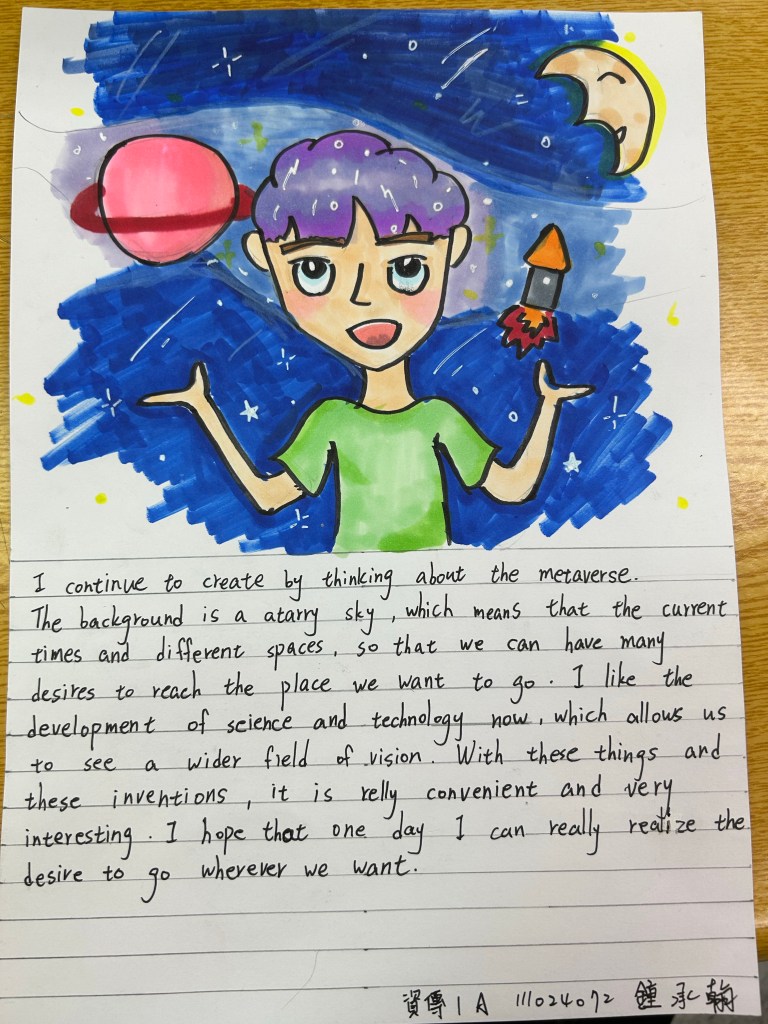 I continue to create by thinking about the metaverse.
The background is a atarry sky, which means that the current
times and different spaces, so that we can have many
desires to reach the place we want to go. I like the
development of science and technology now, which allows us
to see a wider field of vision. With these things and
these inventions, it is relly convenient and very
interesting. I hope that one day I can really realize the
desire to go wherever we want.
資傳1A 111024072 鐘承翰